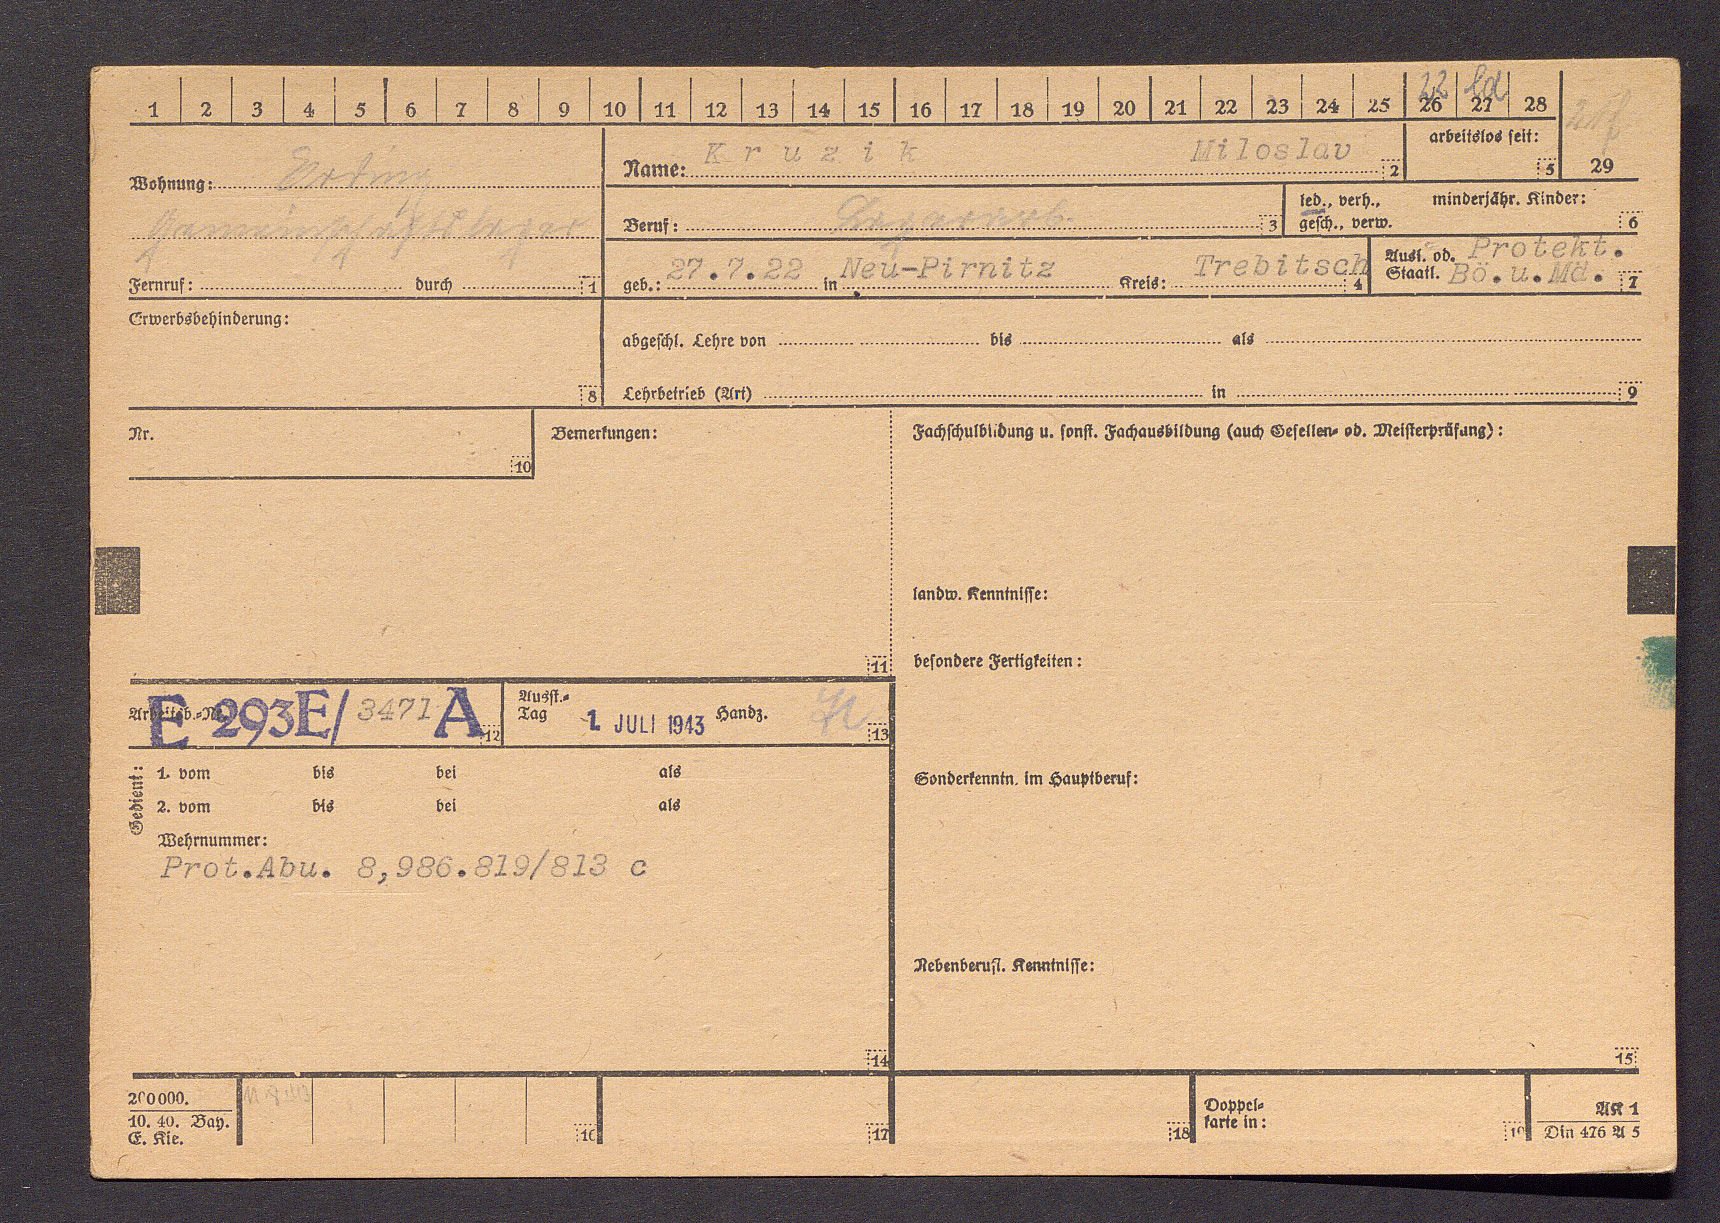 1 2 3 4 5 6 7 8 9 10 11 12 13 14 15 16 17 18 19 20 21 22 23 24 25 26 27 28 29
22
Wohnung: Erding
Gemeinschaftslager
Fernruf: durch 1
Name: Kruzik Miloslav 2
arbeitslos seit: 5
Beruf: Lagerarb. 3
led., verh., minderjähr. Kinder:
gesch., verw. 6
geb.: 27.7.22 in Neu-Pirnitz Kreis: Trebitsch 4
Ausl. od. Protekt.
Staatl. Bö.u.Mä. 7
Erwerbsbehinderung:
8
abgeschl. Lehre von bis als
Lehrbetrieb (Art) in 9
Nr.
10
Bemerkungen:
11
Fachschulbildung u. sonst. Fachausbildung (auch Gesellen- od. Meisterprüfung):
landw. Kenntnisse:
besondere Fertigkeiten:
Sonderkenntn. im Hauptberuf:
Nebenberufl. Kenntnisse:
15
Arbeitsb.-Nr. E 293E/ 3471 A 12
Ausst.-
Tag 1. JULI 1943 Handz. 13
Gedient:
1. vom bis bei als
2. vom bis bei als
Wehrnummer:
Prot.Abu. 8,986.819/813 c
14
200000.
10. 40. Bay.
E. Kie.
16 17 18
Doppel-
karte in: 19
AK 1
Din 476 A 5